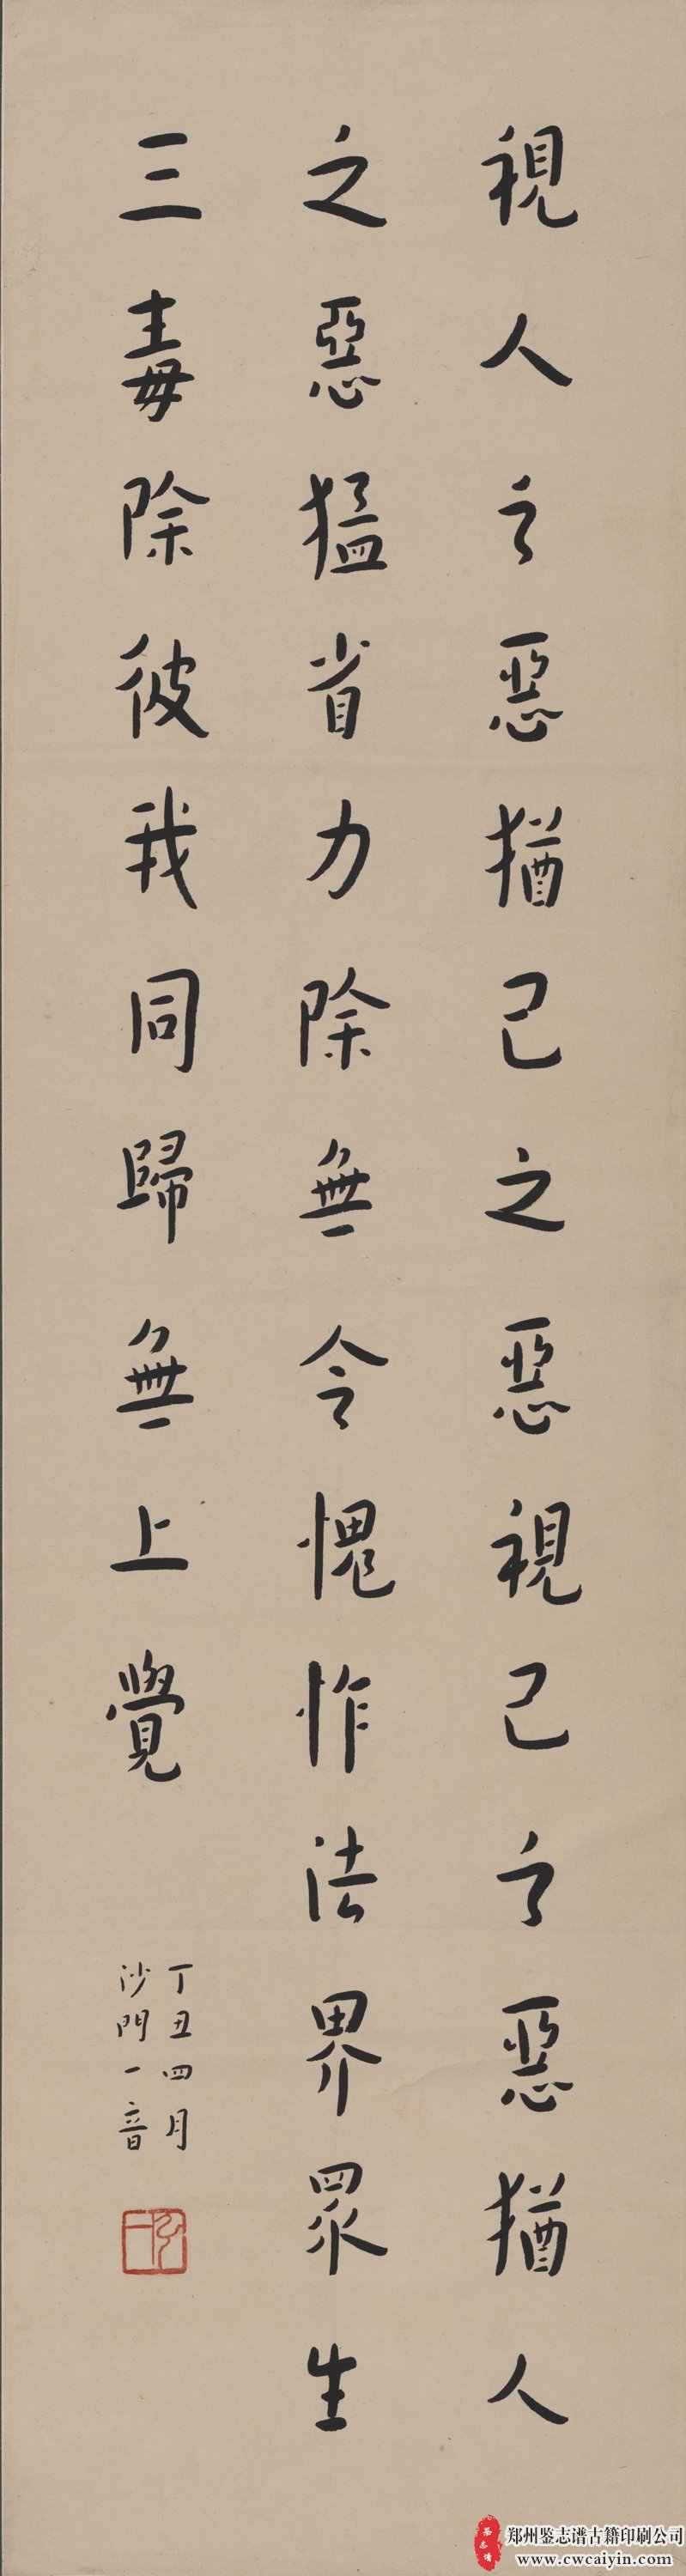 視人之惡猶己之惡視己之惡猶人
之惡猛省力除無令愧怍法界眾生
三毒除彼我同歸無上覺
丁丑四月
沙門一音
弘一
鉴志谱
郑州鉴志谱古籍印刷公司
www.cwcaiyin.com